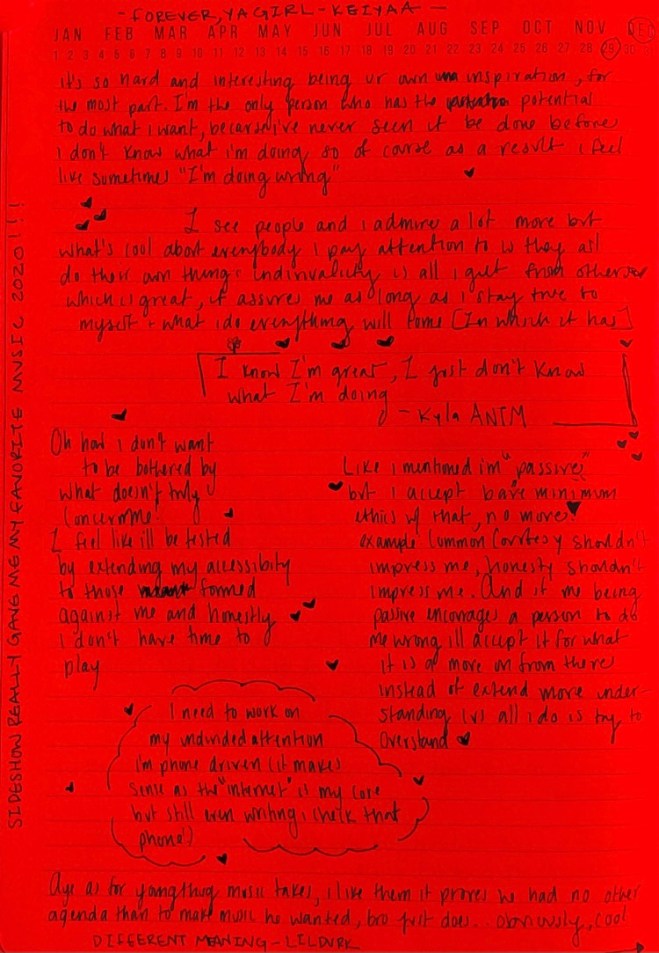 - FOREVER, YA GIRL - KEIYAA -
JAN FEB MAR APR MAY JUN JUL AUG SEP OCT NOV DEC
1 2 3 4 5 6 7 8 9 10 11 12 13 14 15 16 17 18 19 20 21 22 23 24 25 26 27 28 29 30 31
it's so hard and interesting being ur own inspiration, for
the most part. I'm the only person who has the potential
to do what i want, because i've never seen it be done before
I don't know what i'm doing so of course as a result i feel
like sometimes "I'm doing wrong"
I see people and i admire a lot more but
what's cool about everybody i pay attention to is they all
do their own thing: indinvaliity is all i get from others
which is great, it assures me as long as i stay true to
myself + what i do everything will come [In which it has]
I know I'm great, I just don't know
what I'm doing
- Kyla ANTM
Oh how i don't want
to be bothered by
what doesn't truly
concern me!
I feel like ill be tested
by extending my accessibity
to those formed
against me and honestly
i don't have time to
play
Like i mentioned im "passive"
but i accept bare minimum
ethics w/ that, no more!
example Common Courtesy shouldn't
impress me, honesty shouldn't
impress me. And if me being
passive encourages a person to do
me wrong ill accept it for what
it is & move on from there
instead of extend more under-
standing cvs all i do is try to
overstand
I need to work on
my undivided attention
i'm phone driven (it makes
sense as the "internet" is my core
but still even writing i check that
phone!)
Aye as for youngthug music takes, i like them it proves he had no other
agenda than to make music he wanted, bro just does... obviously, cool
DIFFERENT MEANING - LIL DURK
SIDESHOW REALLY GAVE ME MY FAVORITE MUSIC 2020!!!